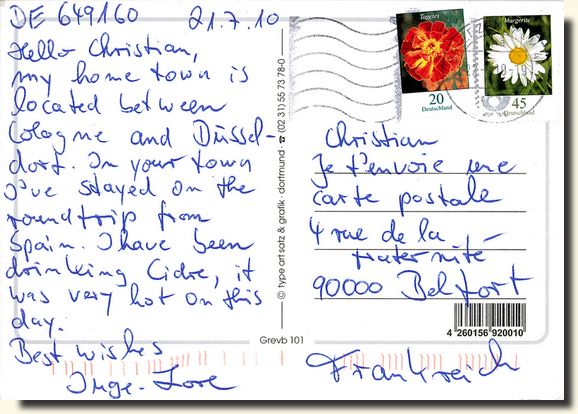 DE 649160 21.7.10
Hello Christian,
my home town is
located between
Cologne and Düssel-
dorf. In your town
I've stayed on the
roundtrip from
Spain. I have been
drinking Cidre, it
was very hot on this
day.
Best wishes
Inge-Lore
© type art satz & grafik · dortmund · ☎ (02 31) 55 73 78-0
Grevb 101
Tagetes
20
Deutschland
Margerite
45
Deutschland
Christian
Je t'envoie une
carte postale
4 rue de la
fraternité
90000 Belfort
4 260156 920010
Frankreich